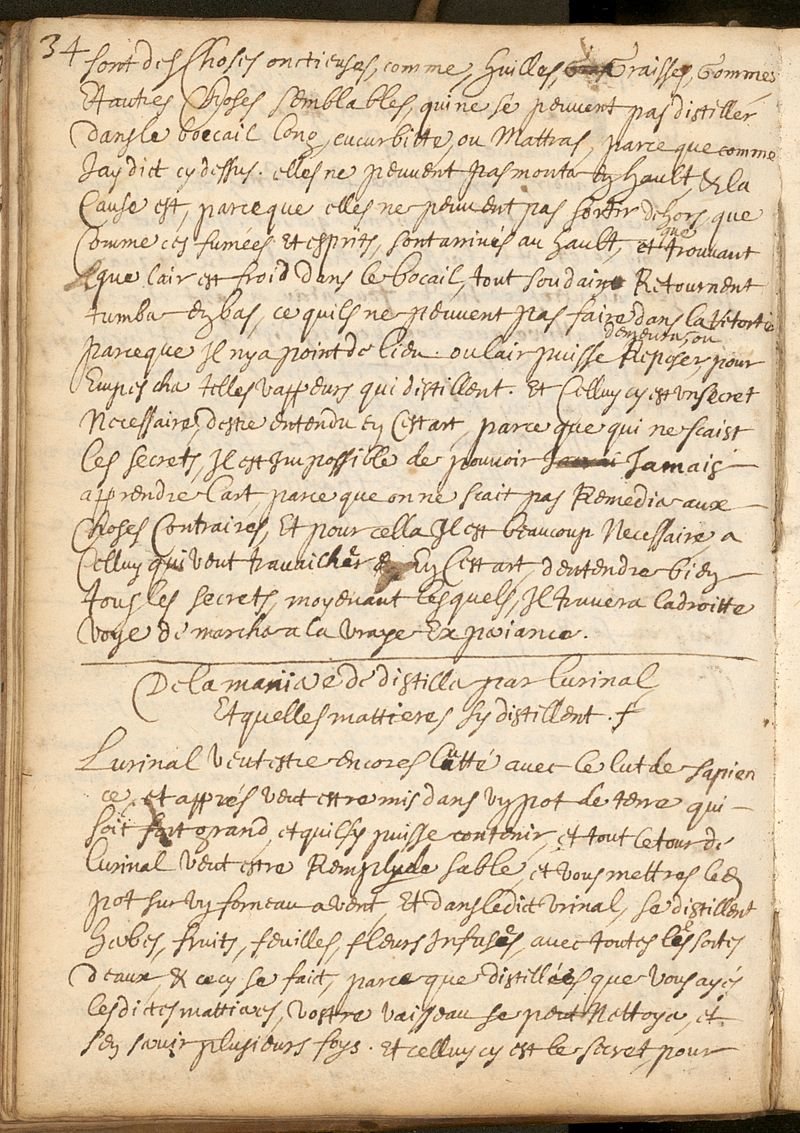 34
sont des Choses onctieuses, comme, huilles, Graisses, Gommes
Et autres Choses semblables, qui ne se peuvent pas distiller
dans le boccail long, cucurbitte, ou Mattras, parce que comme
Jay dict cy dessus. elles ne peuvent pas monter en hault, & la
Cause est, parce que elles ne peuvent pas sortir dehors, que
Comme ces fumées Et esprits, sont arrivés au hault, et que trouvant
que lair est froid dans le bocail, tout soudain Retournent
tumber en bas, ce quils ne peuvent pas faire dans la Retorte
parceque Il ny a point de lieu. ou lair puisse demeurer, ou Reposer pour
Empescher telles vappeurs qui distillent. Et Celluy cy est un secret
Necessaire, destre entendu en Cest art, parce que qui ne scaist
les secrets, Il est Impossible de pouvoir Jamais
apprendre l'art, parce que on ne scait pas Remedier aux
Choses Contraires, Et pour cella Il est beaucoup Necessaire, a
Celluy qui veut travaicher En Cest art, dentendre bien
tous les secrets, moyenant lesquels, Il trouvera la droitte
voye de marcher a la vraye Experiance.
De la maniere de distiller par lurinal,
Et quelles mattieres sy distillent. †
Lurinal veut estre encores lutté avec le lut de sapien
ce, et apprés veut estre mis dans un pot de terre qui
soit fort grand, et quil sy puisse contenir, et tout le tour de
lurinal veut estre Remply de sable, et vous mettres led
pot sur un forneau a vent, Et dans ledict vrinal, se distillent
herbes, fruits, feuilles, fleurs Infusées, avec toutes les sortes
deaux, & cecy se faict, parce que distillées que vous ayés
lesdictes mattieres, vostre vaisseau se peut Nettoyer, et
sen servir plusieurs foys. et celluy cy est le secret, pour